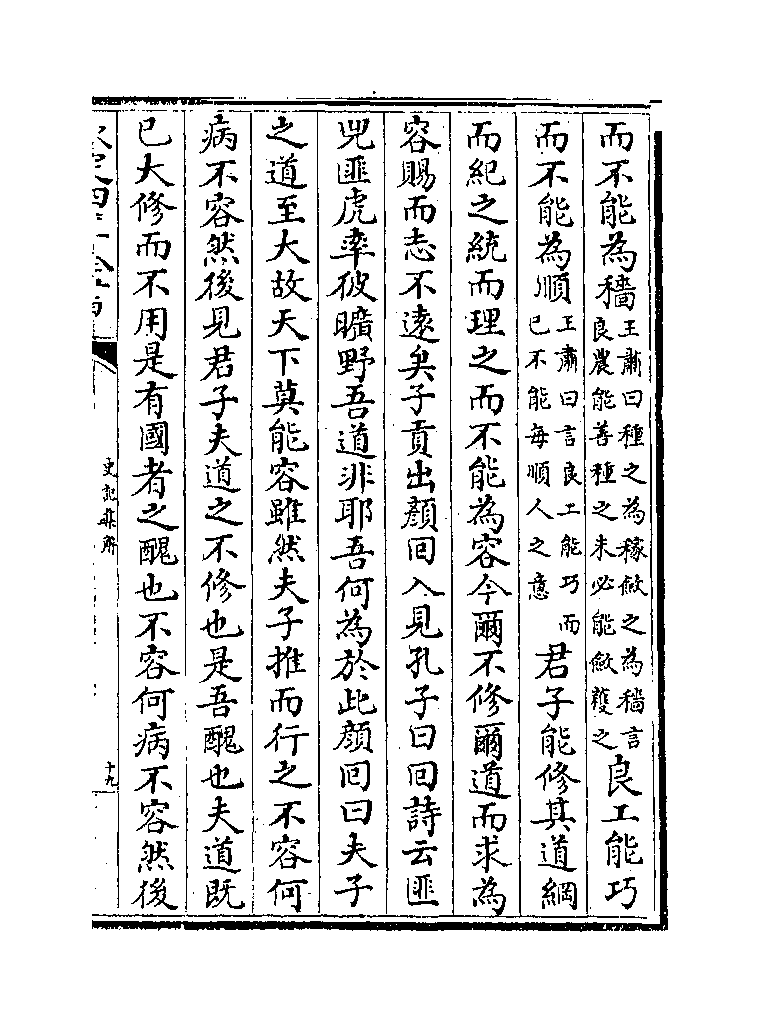 而不能為穡王肅曰種之為稼斂之為穡言良農能善種之未必能斂穫之良工能巧
而不能為順王肅曰言良工能巧而已不能每順人之意君子能修其道綱
而紀之統而理之而不能為容今爾不修爾道而求為
容賜而志不遠矣子貢出顏回入見孔子曰回詩云匪
兕匪虎率彼曠野吾道非耶吾何為於此顏回曰夫子
之道至大故天下莫能容雖然夫子推而行之不容何
病不容然後見君子夫道之不修也是吾醜也夫道既
已大修而不用是有國者之醜也不容何病不容然後
史記集解
十九